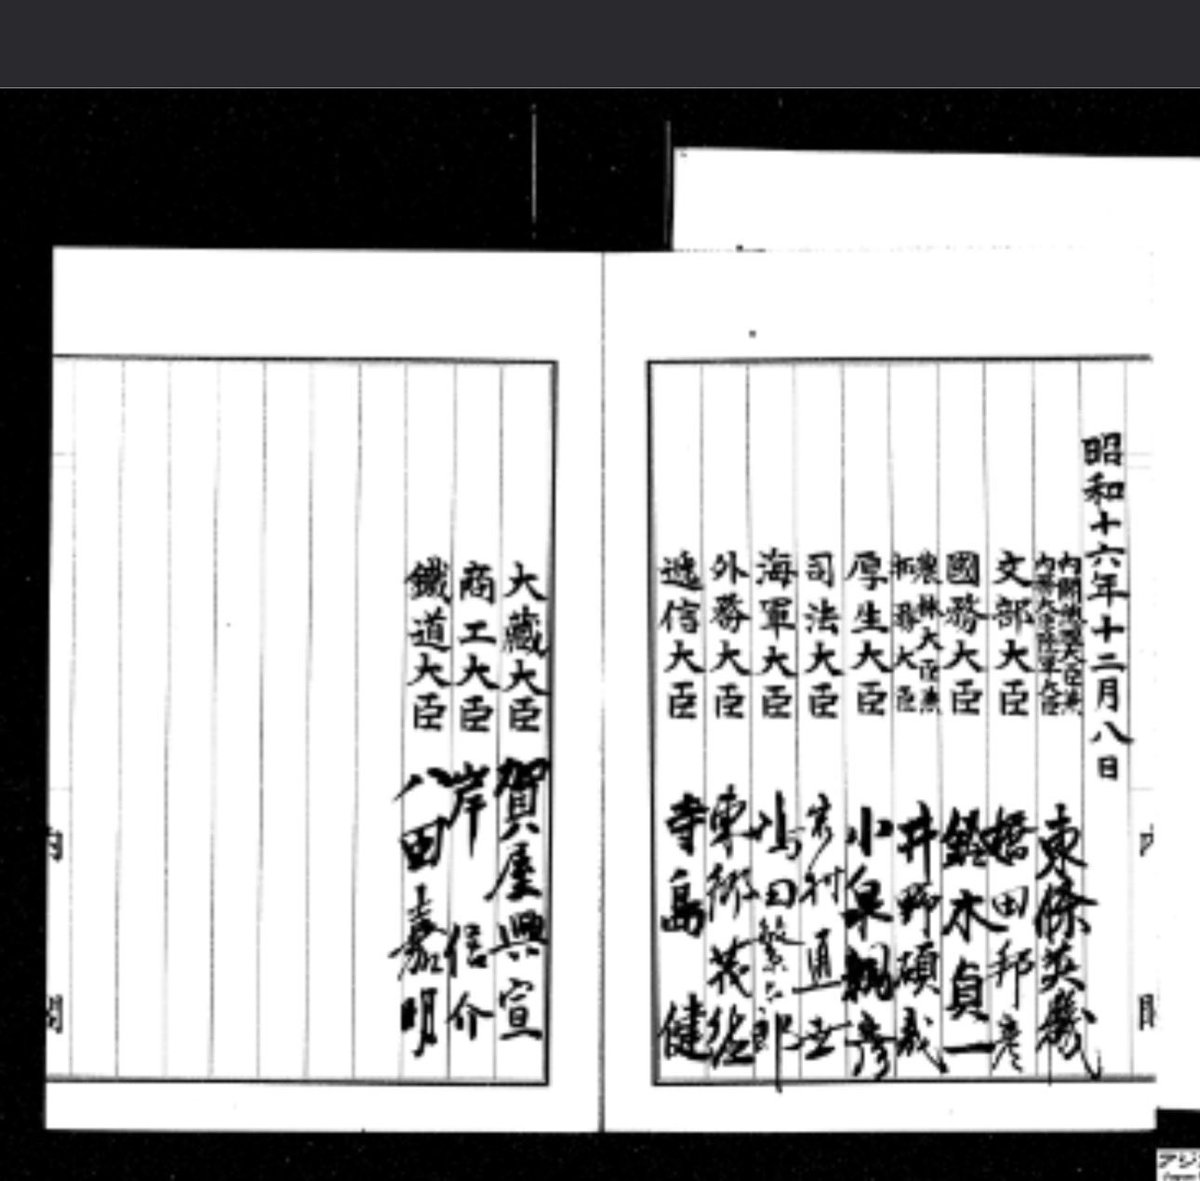 昭和十六年十二月八日
內閣總理大臣兼
內務大臣陸軍大臣
東條英機
文部大臣 橋田邦彦
國務大臣 鈴木貞一
農林大臣兼
拓務大臣
井野碩哉
厚生大臣 小泉親彦
司法大臣 岩村通世
海軍大臣 嶋田繁太郎
外務大臣 東郷茂徳
遞信大臣 寺島健
大藏大臣 賀屋興宣
商工大臣 岸信介
鐵道大臣 八田嘉明
內
閣
アジ